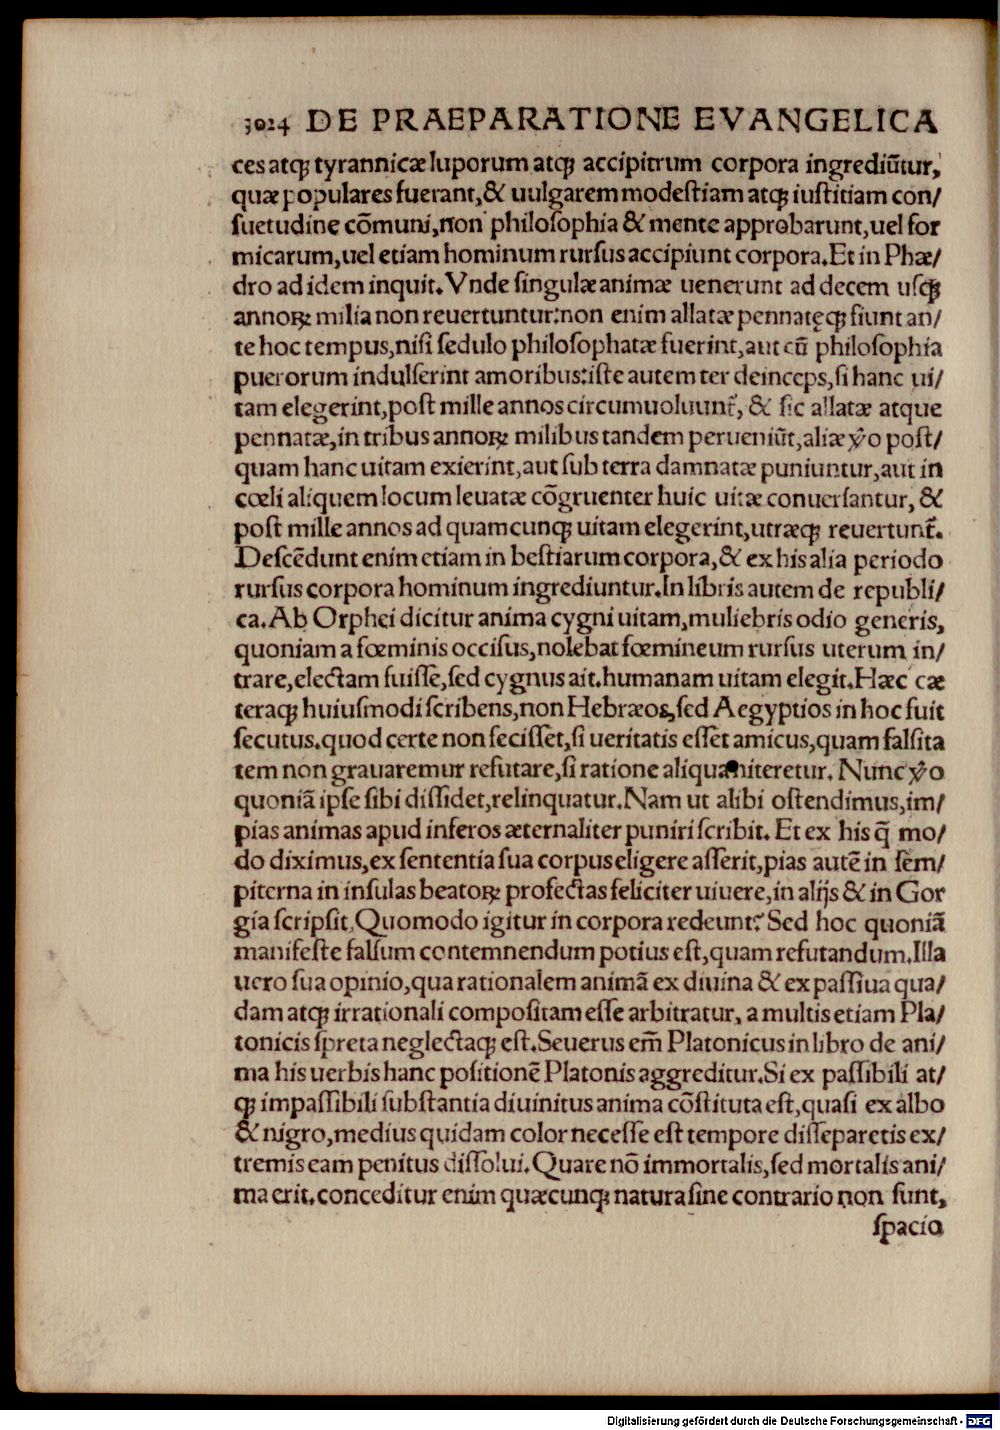 3024 DE PRAEPARATIONE EVANGELICA
ces atqꝫ tyrannicæ luporum atqꝫ accipitrum corpora ingrediũtur,
quæ populares fuerant,& uulgarem modestiam atqꝫ iustitiam con/
suetudine cõmuni,non philosophia & mente approbarunt,uel for
micarum,uel etiam hominum rursus accipiunt corpora.Et in Phæ/
dro ad idem inquit. Vnde singulæ animæ uenerunt ad decem usqꝫ
annoꝝ milia non reuertuntur:non enim allatæ pennatęqꝫ fiunt an/
te hoc tempus,nisi sedulo philosophatæ fuerint,aut cũ philosophia
puerorum indulserint amoribus:iste autem ter deinceps,si hanc ui/
tam elegerint,post mille annos circumuoluunt᷑, & sic allatæ atque
pennatæ,in tribus annoꝝ milibus tandem perueniũt,aliæ ꝟo post/
quam hanc uitam exierint,aut sub terra damnatæ puniuntur,aut in
cœli aliquem locum leuatæ cõgruenter huic uitæ conuersantur, &
post mille annos ad quamcunqꝫ uitam elegerint,utræqꝫ reuertunt᷑.
Descẽdunt enim etiam in bestiarum corpora,& ex his alia periodo
rursus corpora hominum ingrediuntur.In libris autem de republi/
ca.Ab Orphei dicitur anima cygni uitam,muliebris odio generis,
quoniam a fœminis occisus,nolebat fœmineum rursus uterum in/
trare,electam fuisse,sed cygnus ait.humanam uitam elegit.Hæc cæ
teraqꝫ huiusmodi scribens,non Hebræos,sed Aegyptios in hoc fuit
secutus.quod certe non fecisset,si ueritatis esset amicus,quam falsita
tem non grauaremur refutare,si ratione aliqua niteretur. Nunc ꝟo
quoniã ipse sibi dissidet,relinquatur.Nam ut alibi ostendimus,im/
pias animas apud inferos æternaliter puniri scribit. Et ex his q̃ mo/
do diximus,ex sententia sua corpus eligere asserit,pias autẽ in sẽm/
piterna in insulas beatoꝝ profectas feliciter uiuere,in alijs & in Gor
gia scripsit,Quomodo igitur in corpora redeunt? Sed hoc quoniã
manifeste falsum contemnendum potius est,quam refutandum.Illa
uero sua opinio,qua rationalem animã ex diuina & ex passiua qua/
dam atqꝫ irrationali compositam esse arbitratur, a multis etiam Pla/
tonicis spreta neglectaqꝫ est.Seuerus em̃ Platonicus in libro de ani/
ma his uerbis hanc positionẽ Platonis aggreditur.Si ex passibili at/
qꝫ impassibili substantia diuinitus anima cõstituta est,quasi ex albo
& nigro,medius quidam color necesse est tempore disseparetis ex/
tremis eam penitus dissolui.Quare nõ immortalis,sed mortalis ani/
ma erit.conceditur enim quæcunqꝫ natura sine contrario non sunt,
spacio
Digitalisierung gefördert durch die Deutsche Forschungsgemeinschaft - DFG